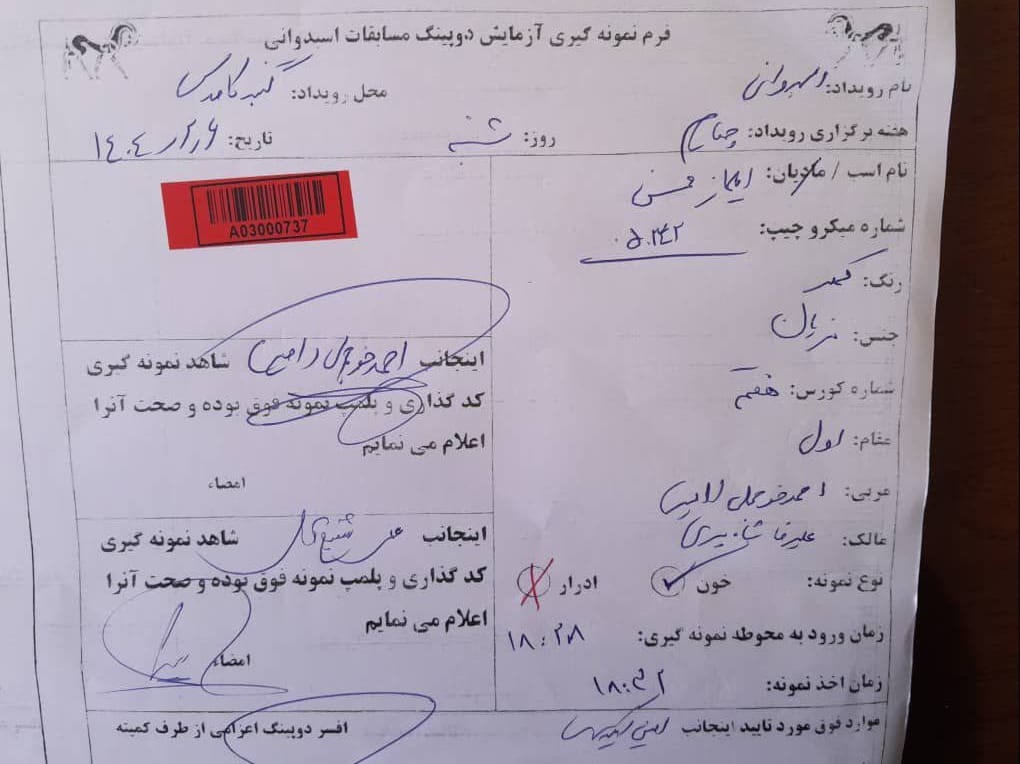 فرم نمونه گیری آزمایش دوپینگ مسابقات اسبدوانی
نام رویداد: اسبدوانی
محل رویداد: گنبد کاووس
هفته برگزاری رویداد: چهارم
روز: شنبه
تاریخ:
نام اسب / مادیان:
شماره میکرو چیپ:
رنگ: کهر
جنس: نریان
شماره کورس: هفتم
مقام: اول
مربی: احمد
مالک: علیرضا
نوع نمونه: خون ادرار
زمان ورود به محوطه نمونه گیری: ۱۸:۲۸
زمان اخذ نمونه: ۱۸:۳۲
موارد فوق مورد تایید اینجانب
A03000737
اینجانب احمد شاهد نمونه گیری
کد گذاری و پلمپ نمونه فوق بوده و صحت آنرا
اعلام می نمایم
امضاء
اینجانب علی شاهد نمونه گیری
کد گذاری و پلمپ نمونه فوق بوده و صحت آنرا
اعلام می نمایم
امضاء
افسر دوپینگ اعزامی از طرف کمیته